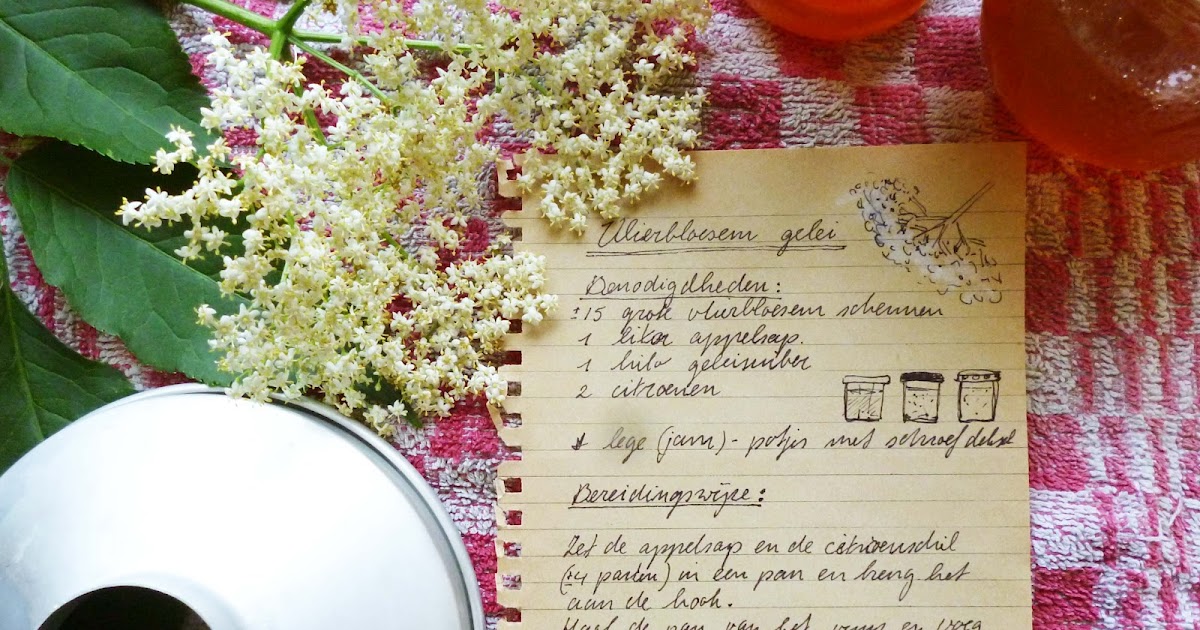 Vlierbloesem gelei
Benodigdheden:
±15 grote vlierbloesem schermen
1 liter appelsap.
1 kilo geleisuiker
2 citroenen
lege (jam)-potjes met schroefdeksel
Bereidingswijze:
Zet de appelsap en de citroenschil
(±4 parten) in een pan en breng het
aan de kook.
Haal de pan van het vuur en voeg